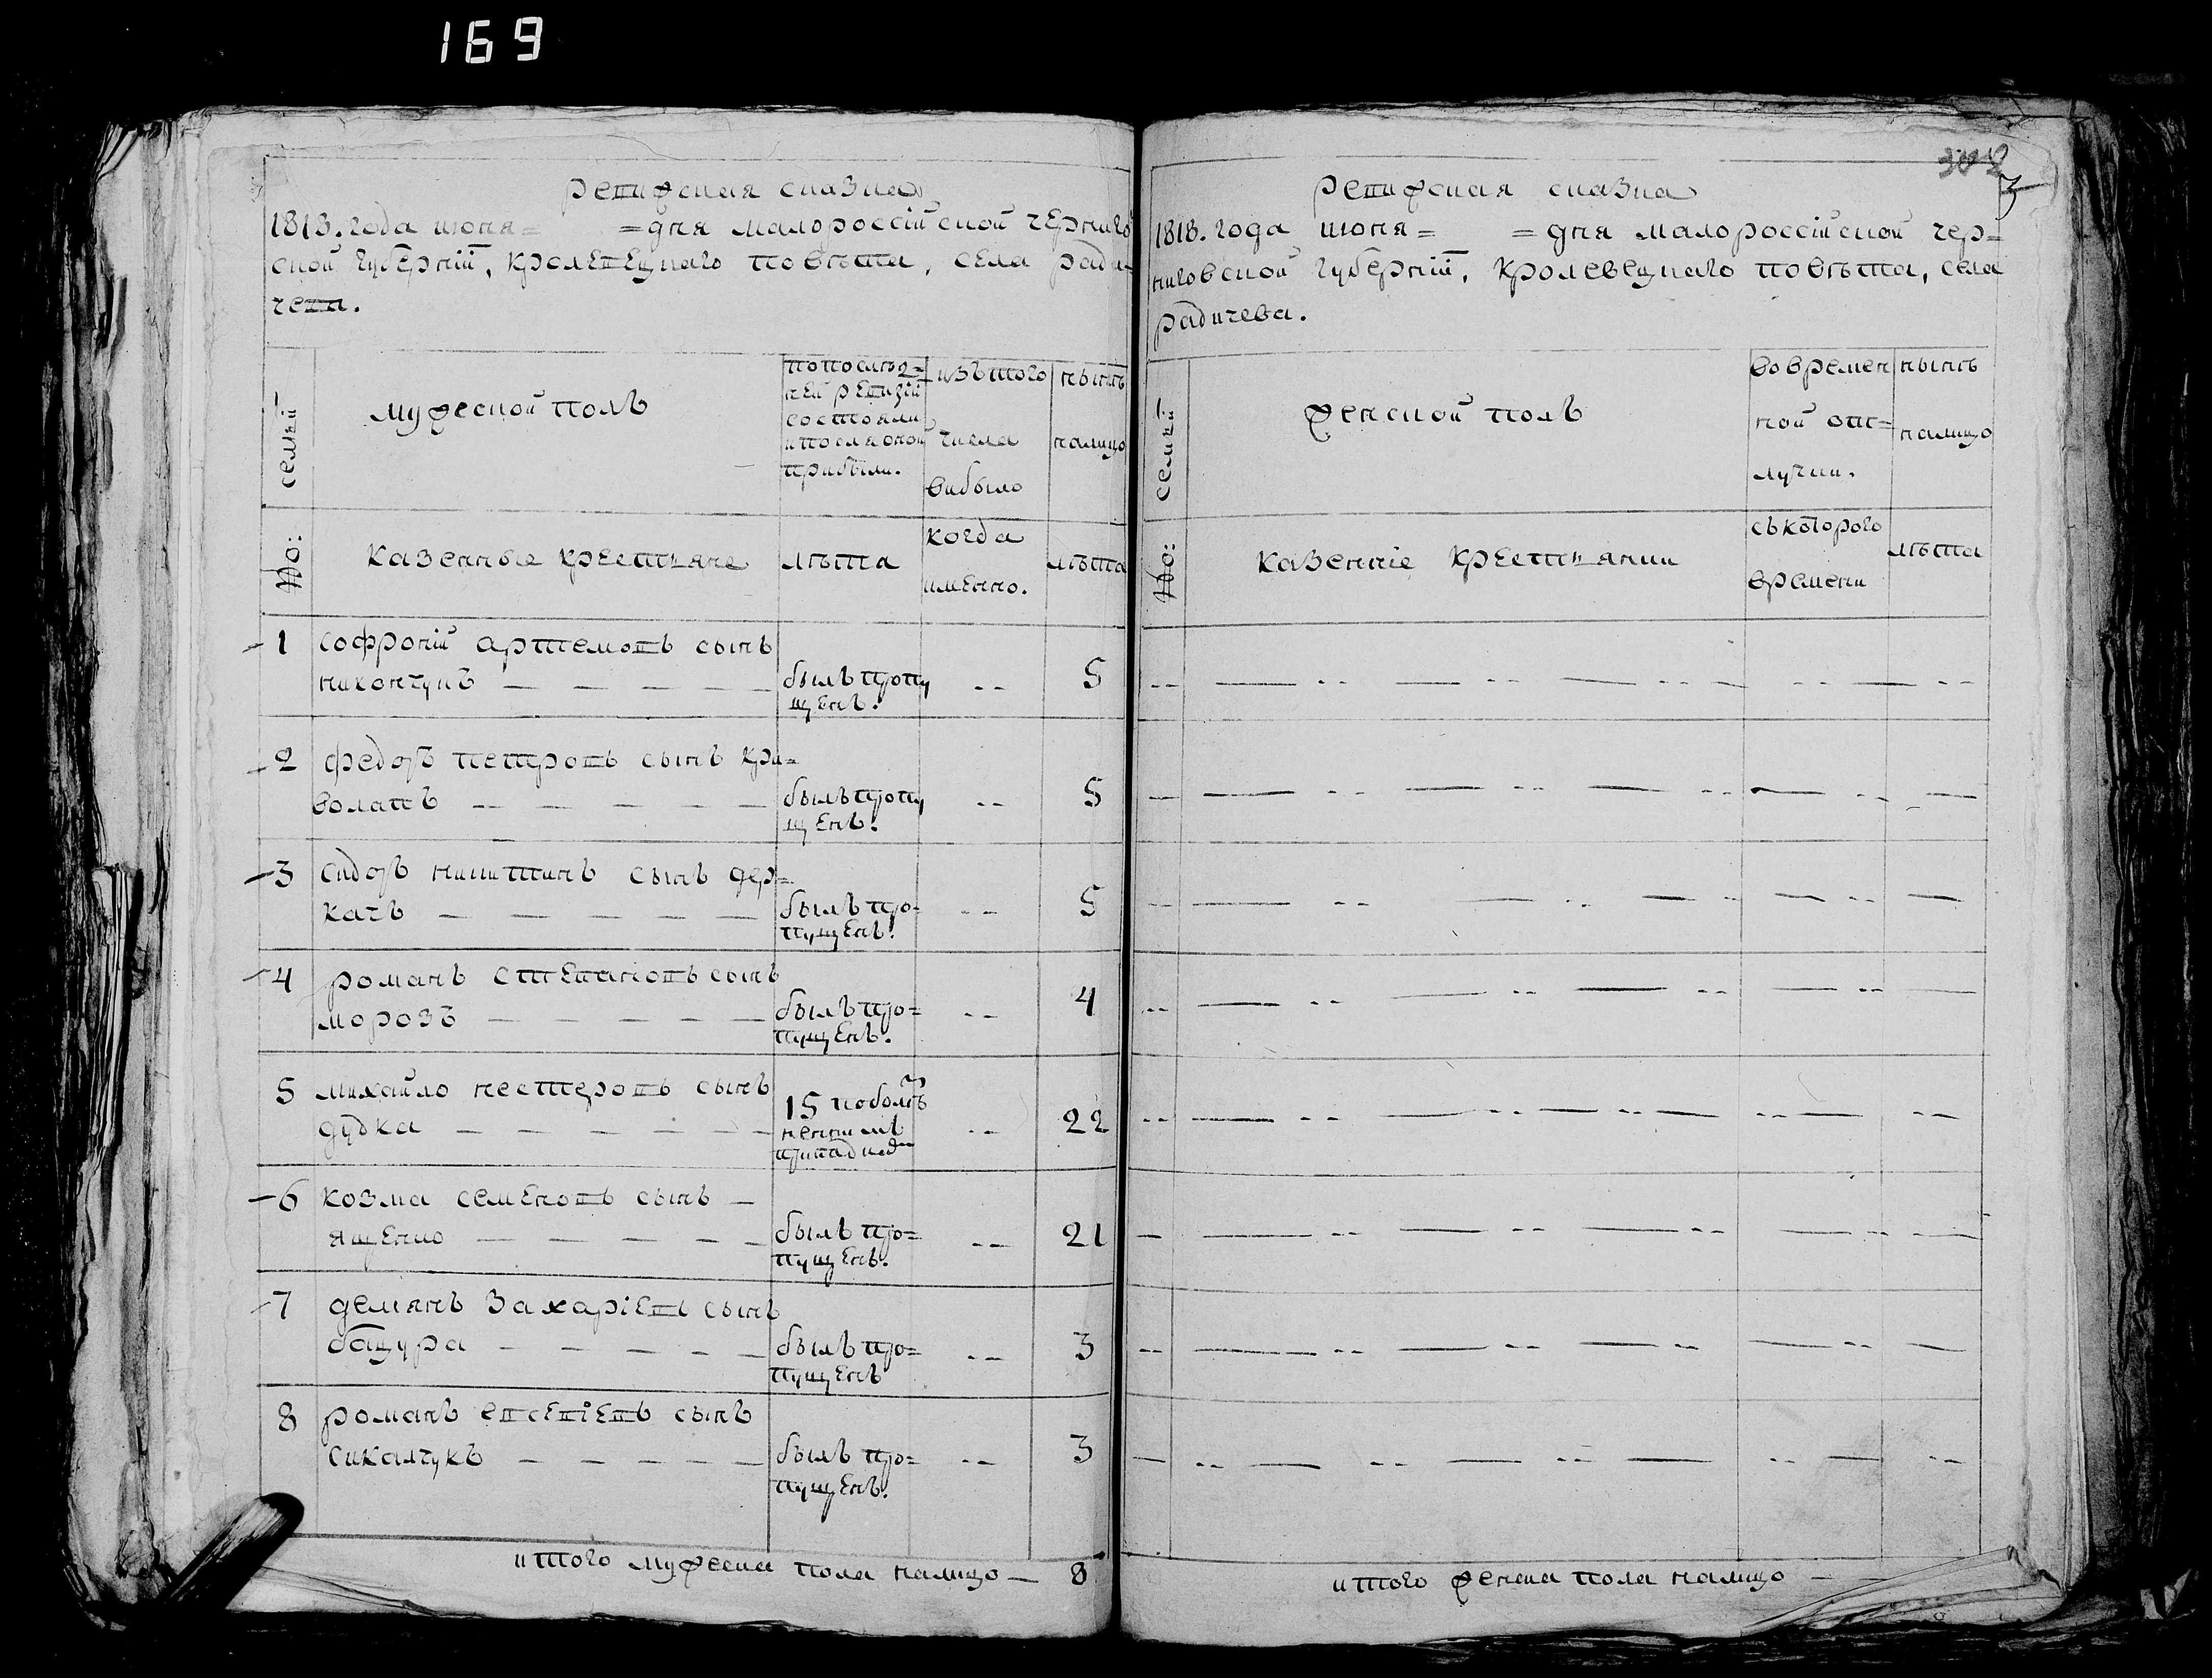 169
302
3
ревижская сказка
1818. года июня= =дня малороссійской черниго
ской губерній, кролевецкаго повѣта, села ради-
чева.
семей
мужеской полъ
попослѣд=
ней ревизій
состояли
ипослѣ оной
прибыли.
изътого
числа
вибыло
нынѣ
налицо
№:
казенные крестьяне
лѣта
когда
именно.
лѣта
1 софроній артемовъ сынъ
никончукъ — — — — — былъ пропу -- 5
щенъ.
2 федоръ петровъ сынъ кри=
волапъ — — — — — былъ пропу -- 5
щенъ.
3 сидоръ никитинъ сынъ дер=
качъ — — — — — былъ про- -- 5
пущенъ.
4 романъ степановъ сынъ
морозъ — — — — — былъ про= -- 4
пущенъ.
5 михайло нестеровъ сынъ 15
дудка — — — — — -- 22
6 козма семеновъ сынъ —
ященко — — — — — былъ про= -- 21
пущенъ.
7 демянъ захаріевъ сынъ
бацура — — — — — былъ про= -- 3
пущенъ
8 романъ евсевіевъ сынъ
сикалчукъ — — — — — былъ про= -- 3
пущенъ.
итого мужеска пола налицо — 8
ревижская сказка
1818. года июня= =дня малороссійской чер=
ниговской губерній, кролевецкаго повѣта, села
радичева.
семей
женской полъ
вовремен
ной от=
лучки.
нынѣ
налицо
№:
казенніе крестьянки
съкоторого
времени
лѣта
итого женска пола налицо — —